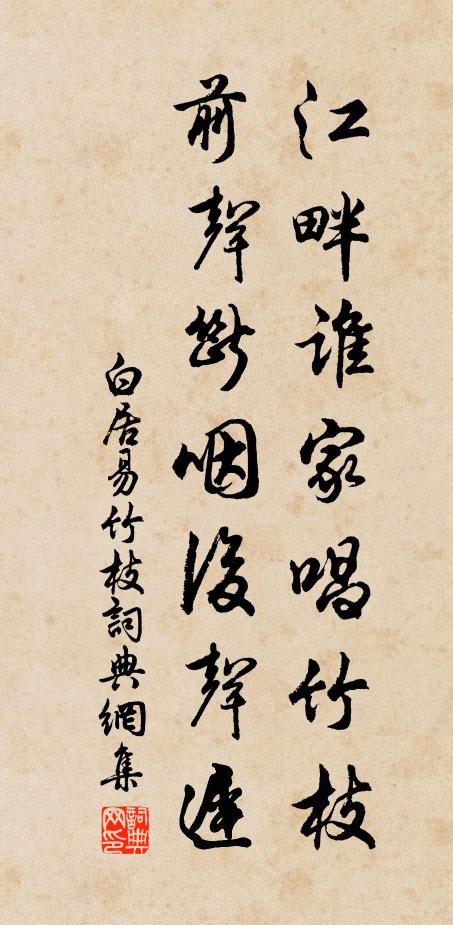 江畔誰家唱竹枝
前聲斷咽後聲遲
白居易竹枝詞典網集
詞典网印